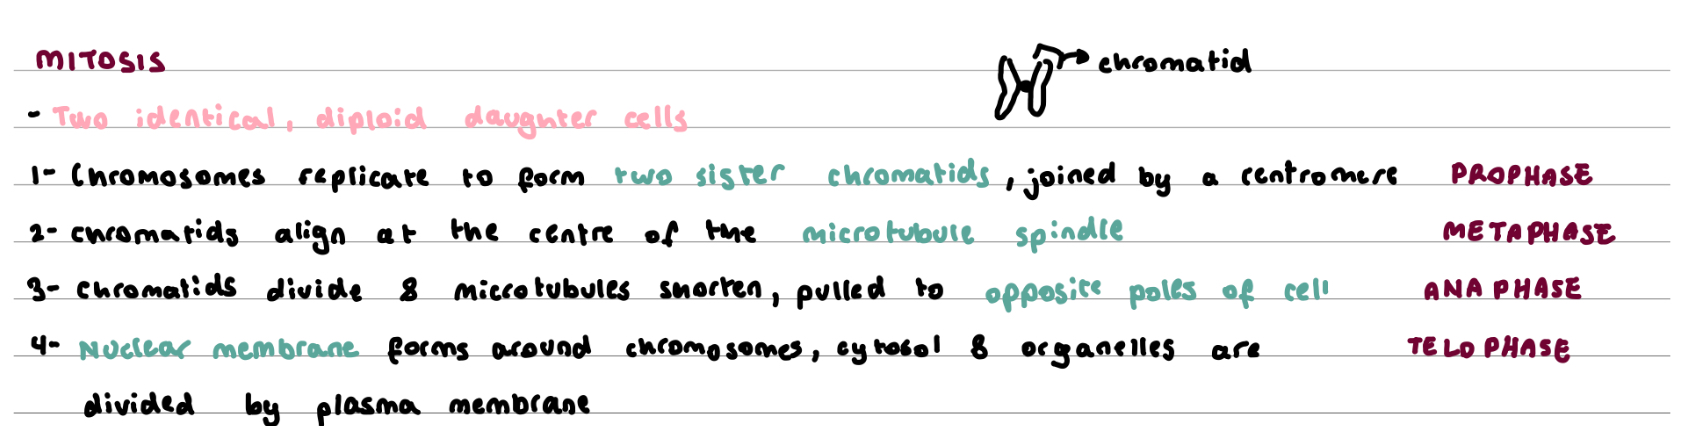 MITOSIS
chromatid
- Two identical, diploid daughter cells
1- Chromosomes replicate to form two sister chromatids, joined by a centromere PROPHASE
2- chromatids align at the centre of the microtubule spindle METAPHASE
3- chromatids divide & microtubules shorten, pulled to opposite poles of cell ANAPHASE
4- Nuclear membrane forms around chromosomes, cytosol & organelles are TELOPHASE
divided by plasma membrane